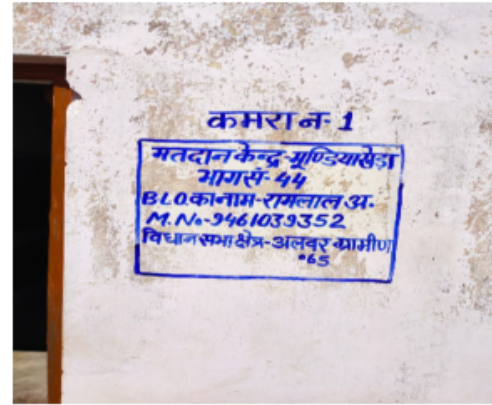 कमरा न- 1
मतदान केन्द्र-मूण्डियाखेड़ा
भाग सं- 44
B.L.O. का नाम-रामलाल अ.
M. No-9461039352
विधानसभा क्षेत्र-अलवर ग्रामीण
65